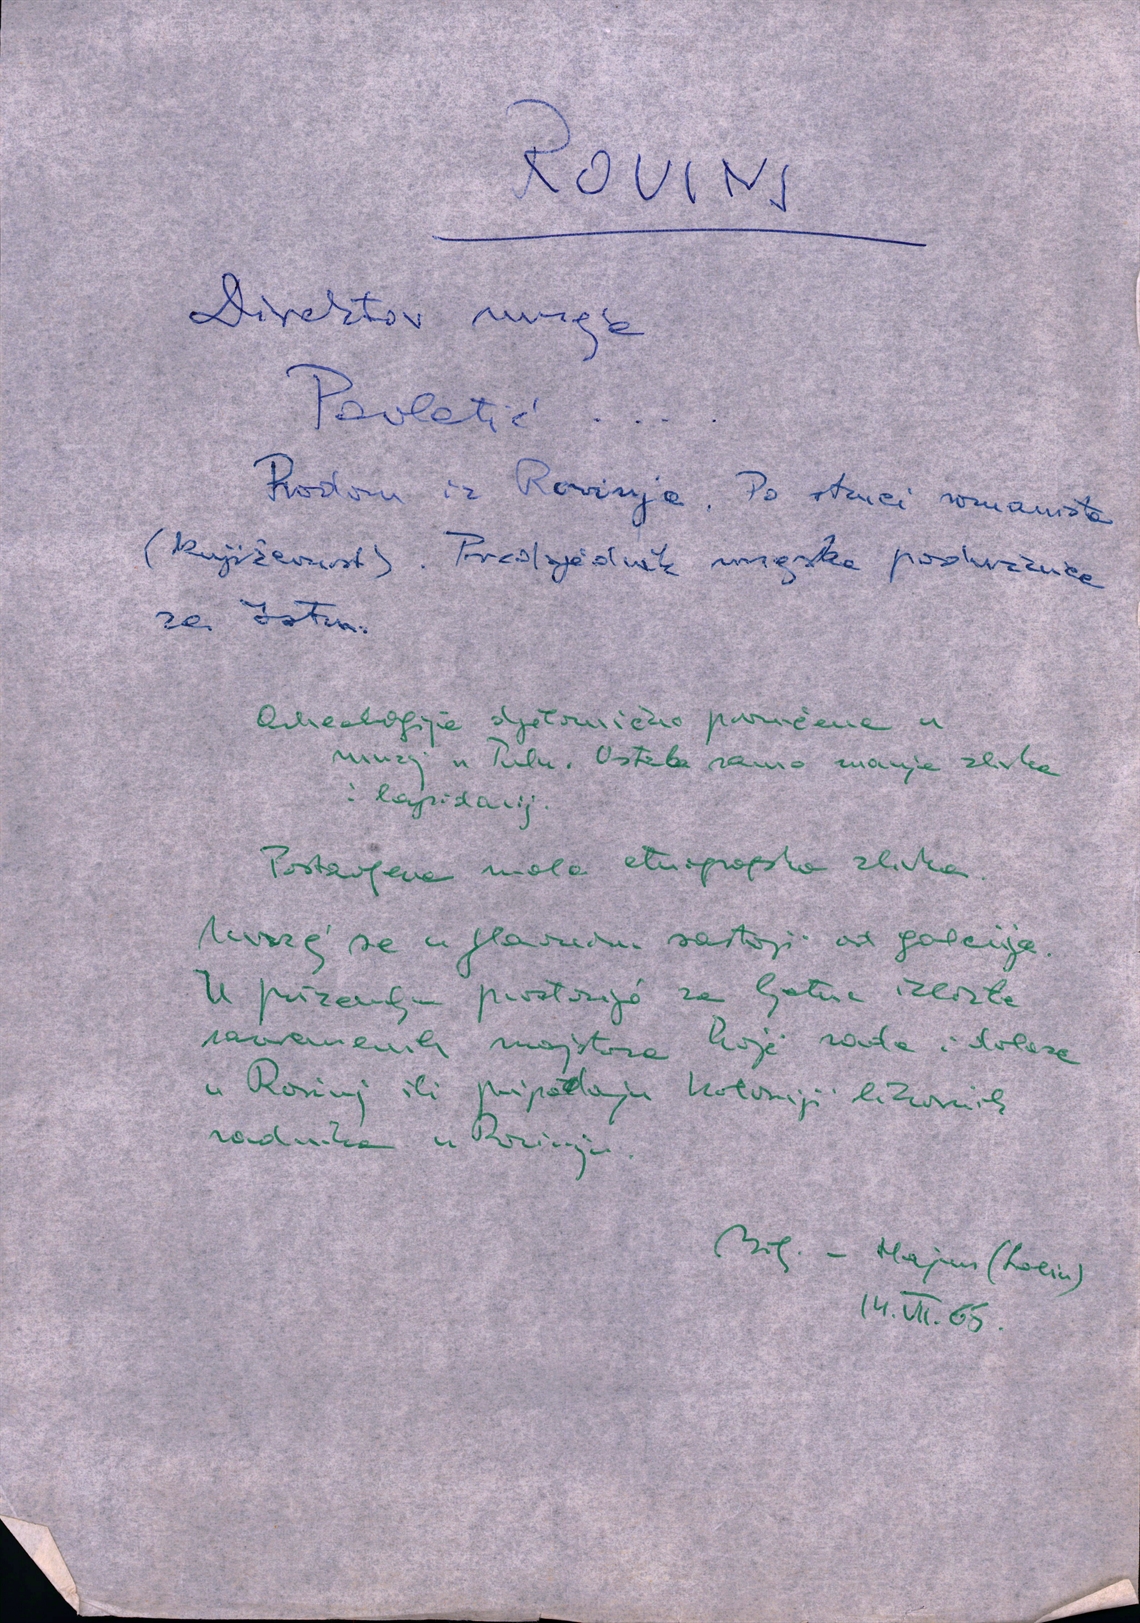 ROVINJ
Direktor muzeja
Pavletić . . . .
Rodom iz Rovinja. Po struci romanista
(književnost). Predsjednik muzejske podružnice
za Istru.
Arheologija djelomično povučena u
muzej u Puli. Ostala samo manja zbirka
i lapidarij.
Postavljena mala etnografska zbirka.
Muzej se u glavnom sastoji od galerije.
U prizemlju prostorije za ljetne izložbe
savremenih majstora koji rade i dolaze
u Rovinj ili pripadaju koloniji likovnih
radnika u Rovinju.
Bilj. – Majnarić (Lolin)
14. VII. 65.